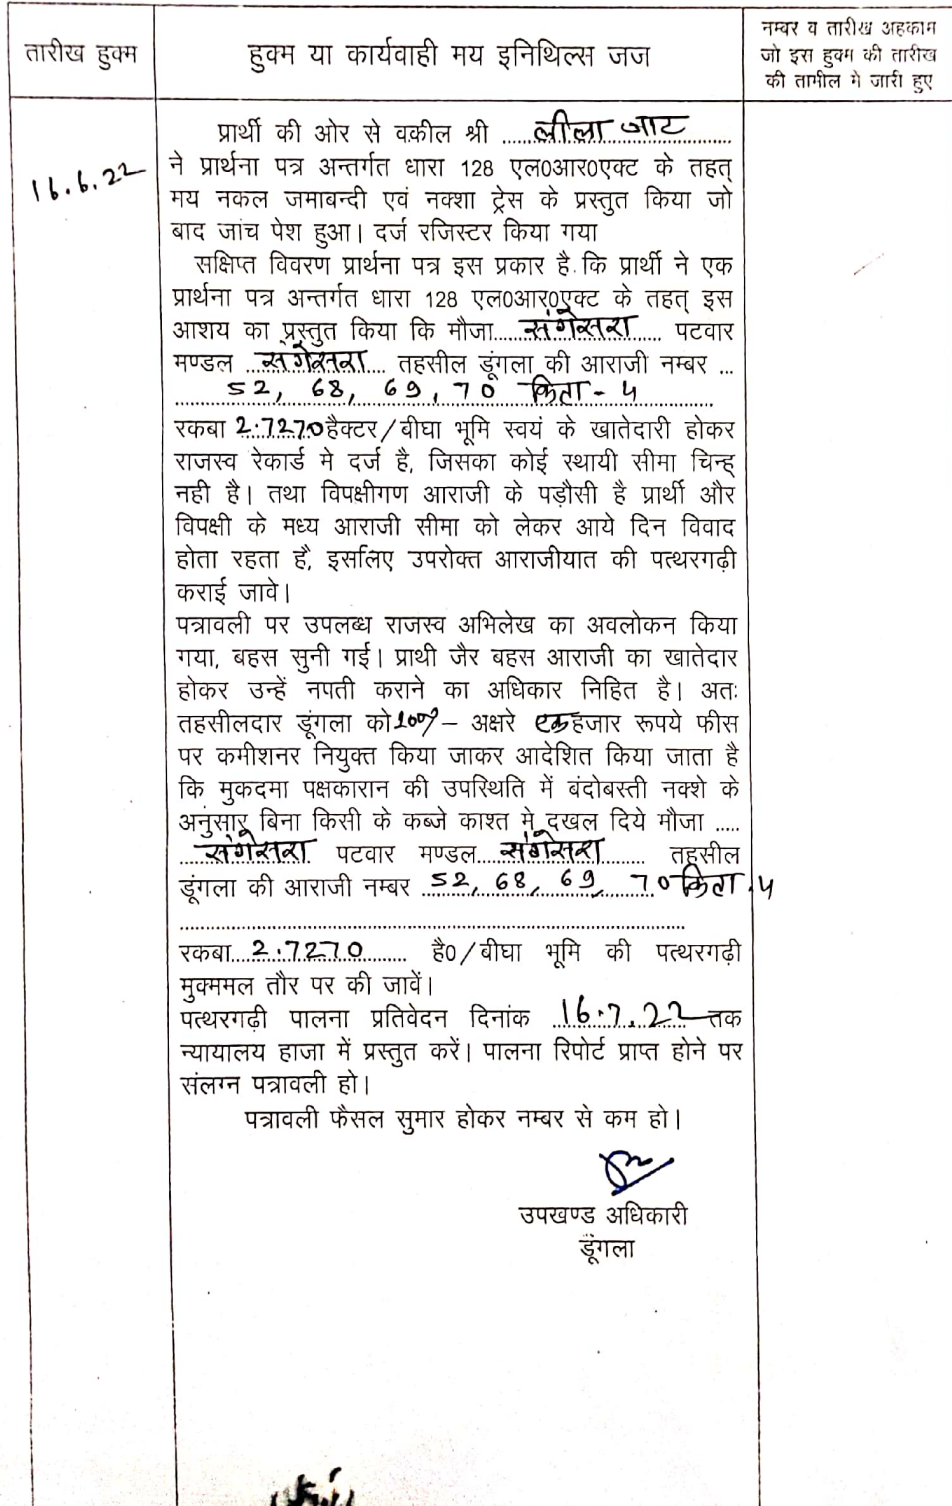 तारीख हुक्म
हुक्म या कार्यवाही मय इनिथिल्स जज
नम्बर व तारीख अहकाम
जो इस हुक्म की तारीख
की तामील मे जारी हुए
16.6.22
प्रार्थी की ओर से वकील श्री ......लीला जाट......
ने प्रार्थना पत्र अन्तर्गत धारा 128 एल0आर0एक्ट के तहत्
मय नकल जमाबन्दी एवं नक्शा ट्रेस के प्रस्तुत किया जो
बाद जांच पेश हुआ। दर्ज रजिस्टर किया गया
सक्षिप्त विवरण प्रार्थना पत्र इस प्रकार है कि प्रार्थी ने एक
प्रार्थना पत्र अन्तर्गत धारा 128 एल0आर0एक्ट के तहत् इस
आशय का प्रस्तुत किया कि मौजा.....संगेसरा..... पटवार
मण्डल ...संगेसरा.... तहसील डूंगला की आराजी नम्बर ...
52, 68, 69, 70 किता - 4
रकबा 2.7270 हैक्टर/बीघा भूमि स्वयं के खातेदारी होकर
राजस्व रेकार्ड मे दर्ज है, जिसका कोई स्थायी सीमा चिन्ह्
नही है। तथा विपक्षीगण आराजी के पड़ौसी है प्रार्थी और
विपक्षी के मध्य आराजी सीमा को लेकर आये दिन विवाद
होता रहता है, इसलिए उपरोक्त आराजीयात की पत्थरगढ़ी
कराई जावे।
पत्रावली पर उपलब्ध राजस्व अभिलेख का अवलोकन किया
गया, बहस सुनी गई। प्राथी जैर बहस आराजी का खातेदार
होकर उन्हें नपती कराने का अधिकार निहित है। अतः
तहसीलदार डूंगला को – अक्षरे एक हजार रूपये फीस
पर कमीशनर नियुक्त किया जाकर आदेशित किया जाता है
कि मुकदमा पक्षकारान की उपस्थिति में बंदोबस्ती नक्शे के
अनुसार बिना किसी के कब्जे काश्त मे दखल दिये मौजा .....
....संगेसरा. पटवार मण्डल...संगेसरा....... तहसील
डूंगला की आराजी नम्बर 52, 68, 69, 70 किता . 4
रकबा...2.7270....... है0/बीघा भूमि की पत्थरगढ़ी
मुक्ममल तौर पर की जावें।
पत्थरगढ़ी पालना प्रतिवेदन दिनांक ..16.7.22.. तक
न्यायालय हाजा में प्रस्तुत करें। पालना रिपोर्ट प्राप्त होने पर
संलग्न पत्रावली हो।
पत्रावली फैसल सुमार होकर नम्बर से कम हो।
उपखण्ड अधिकारी
डूंगला